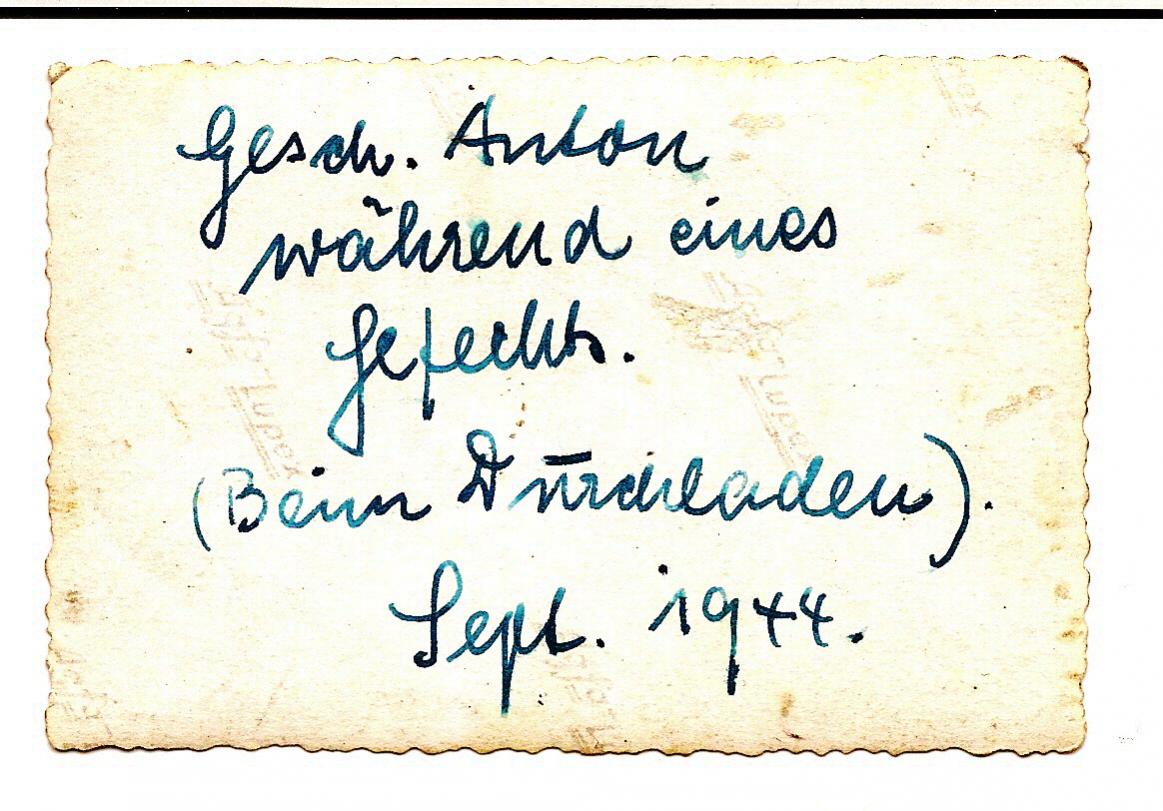 Gesch. Anton
während eines
Gefechts.
(Beim Durchladen).
Sept. 1944.